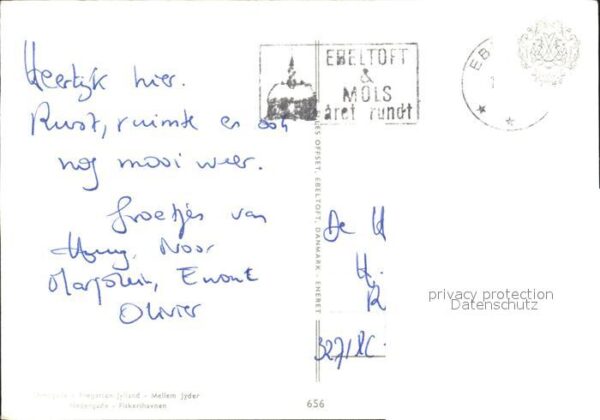 Heerlijk hier.
Rust, ruimte en ook
nog mooi weer.
Groetjes van
Noor
Marjolein, Ewout
Olivier
EBELTOFT
&
MOLS
året rundt
EB
OFFSET, EBELTOFT, DANMARK - ENERET
De H
H.
R
3271RC
privacy protection
Datenschutz
Fregatten Jylland - Mellem Jyder
Nedergade - Fiskerihavnen
656